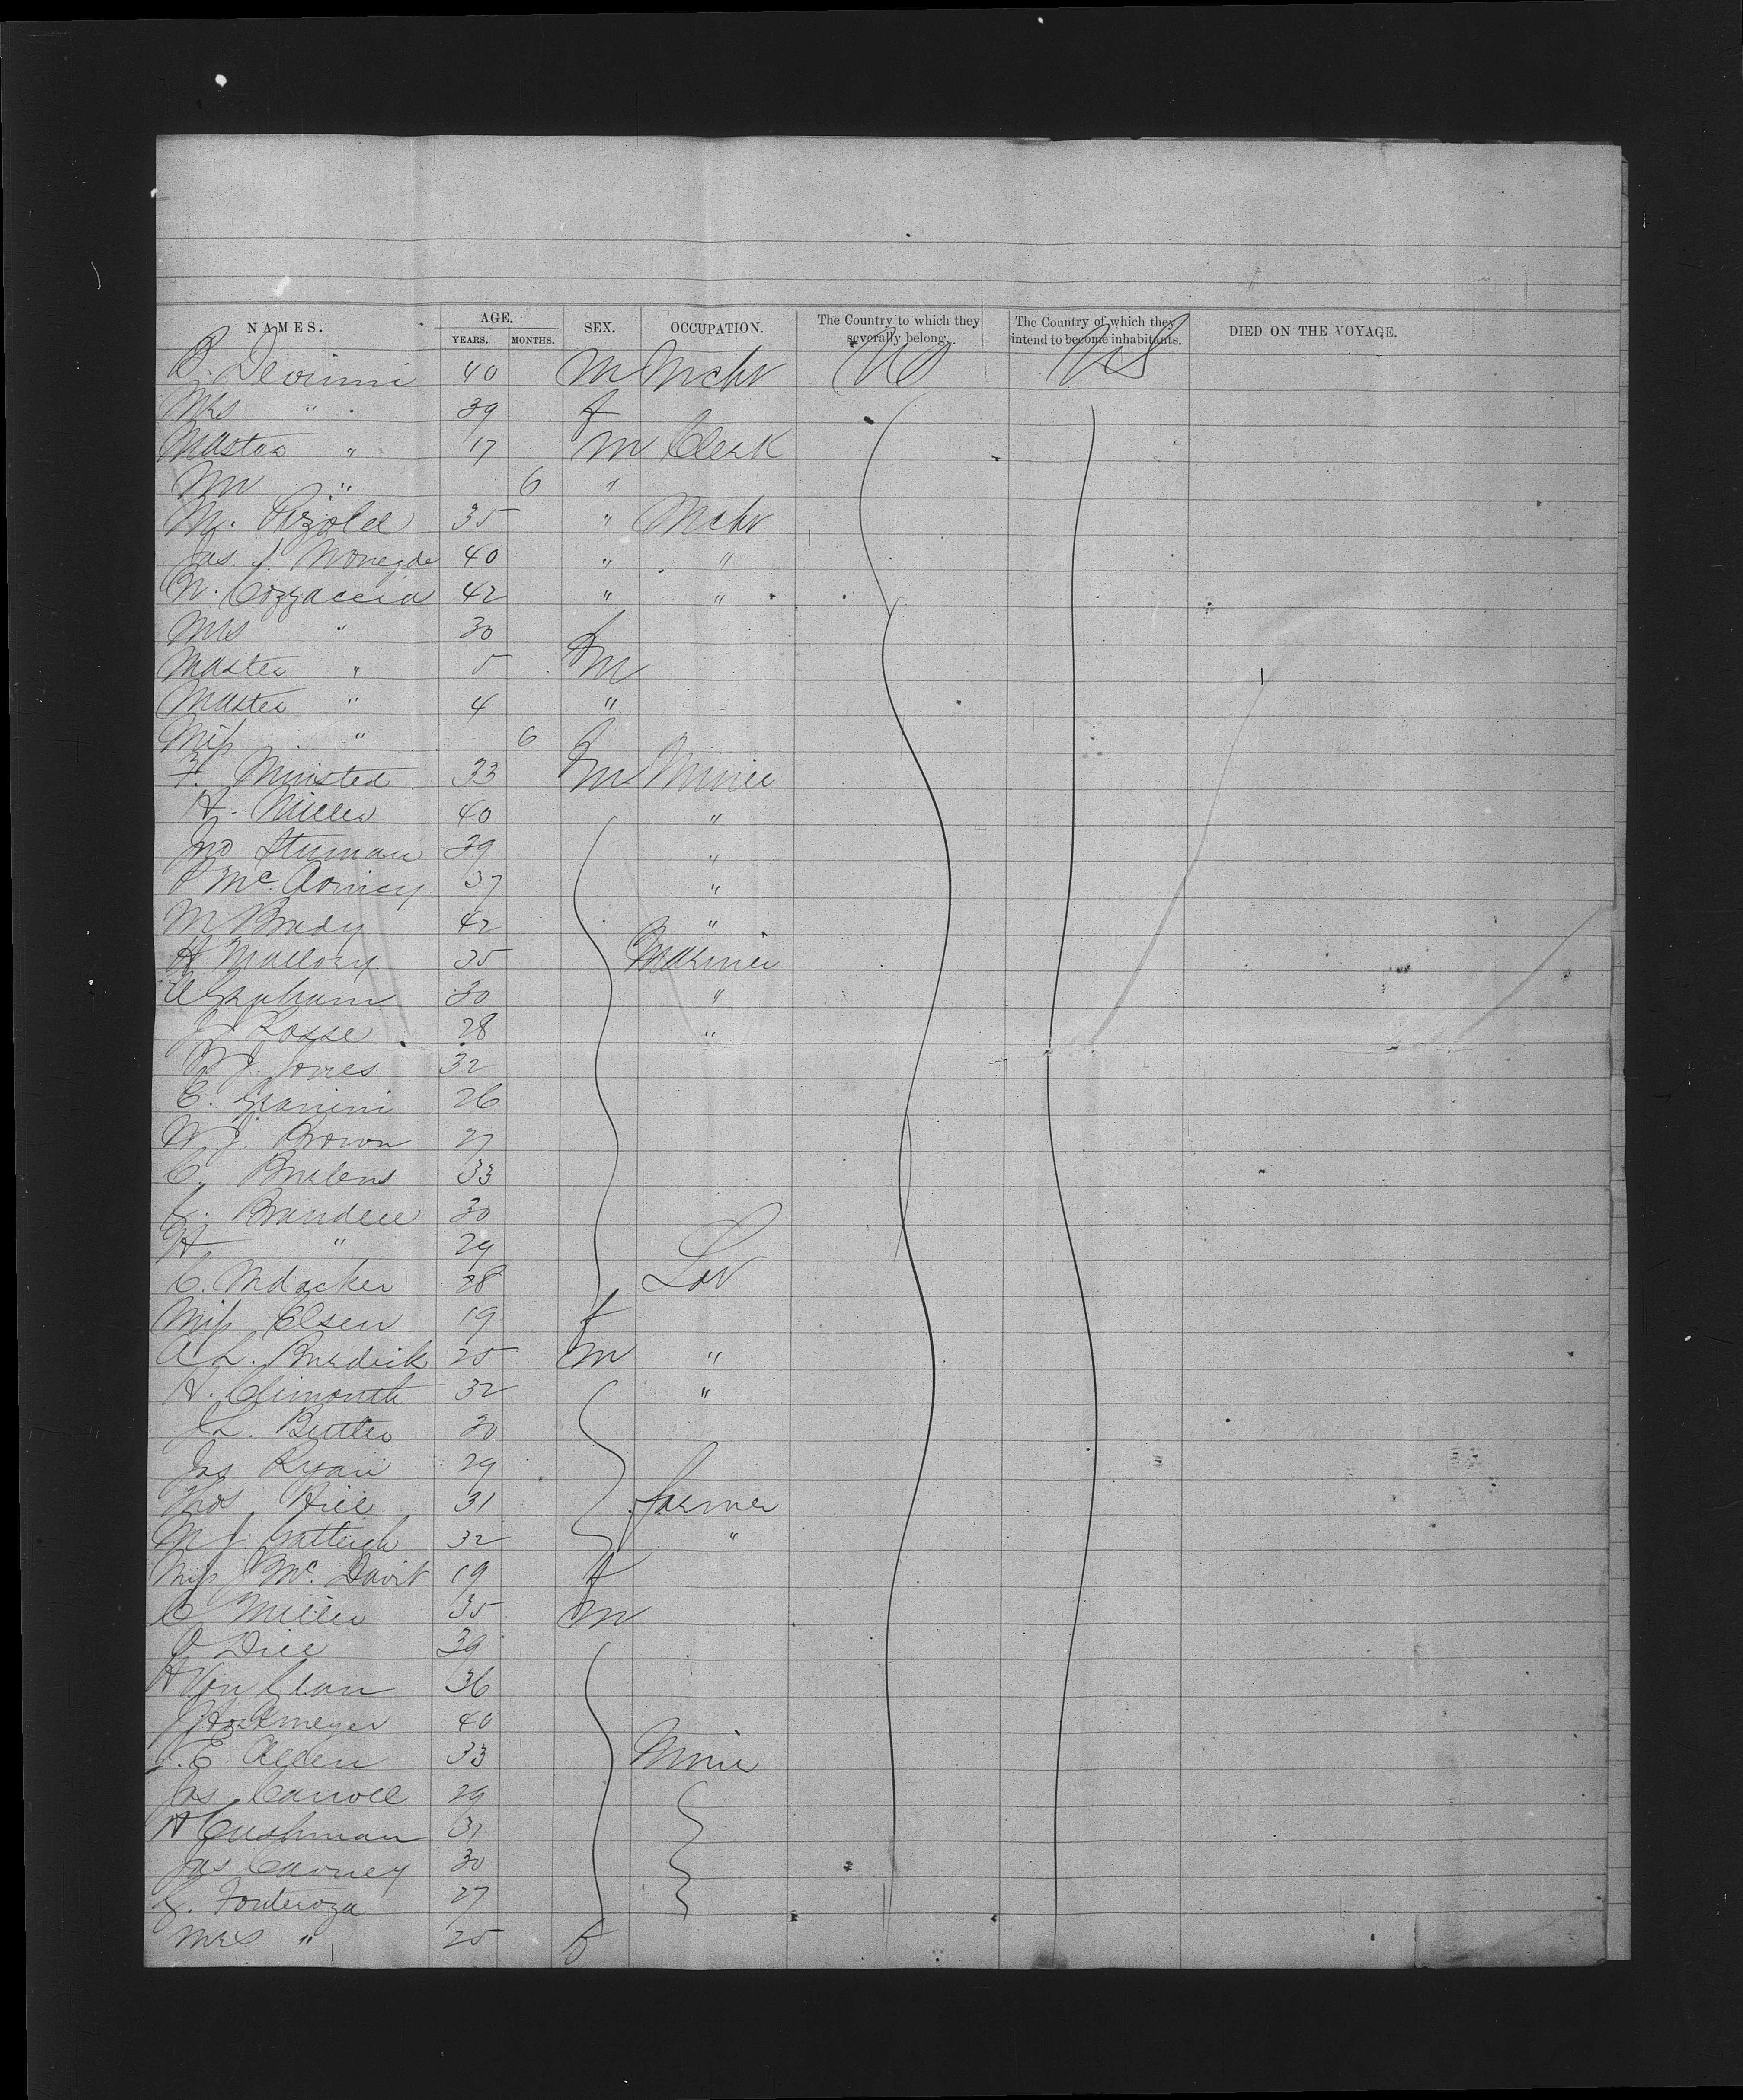 NAMES. AGE. SEX. OCCUPATION. The Country to which they severally belong. The Country of which they intend to become inhabitants. DIED ON THE VOYAGE.
YEARS. MONTHS.
B. Devinni 40 M Mcht US US
Mrs " 39 f
Master " 17 M Clerk
Mr " 6 "
M. 35 " Mcht
Jas. 40 " "
N. Cozzaccia 42 " "
Mrs " 30 f
Master " 5 M
Master " 4 "
Miss " 6 f
F. Minsted 33 M Miner
H. Miller 40 "
Jno Sturman 39 "
P Mc. 37 "
M Brady 42 "
H Mallory 35 Mariner
A Graham 30 "
J. Rosse 28 "
W J. Jones 32
C. Granini 26
W J. Brown 27
C. 33
C. Brandell 30
H " 29
C. 28 Lab
Miss Olsen 19 f
A L. Burdick 25 M "
H. 32 "
J L. Butler 30
Jas Ryan 29
Thos Hill 31 farmer
M J. 32 "
Miss J Mc. Davit 19 f
C Miller 35 M
O Dill 39
H Von Glan 36
J Hockmeyer 40
J. E. Allen 33 Miner
Jas Carroll 29
H Cushman 31
Jas Carney 30
G. Fonteroza 27
Mrs " 25 f